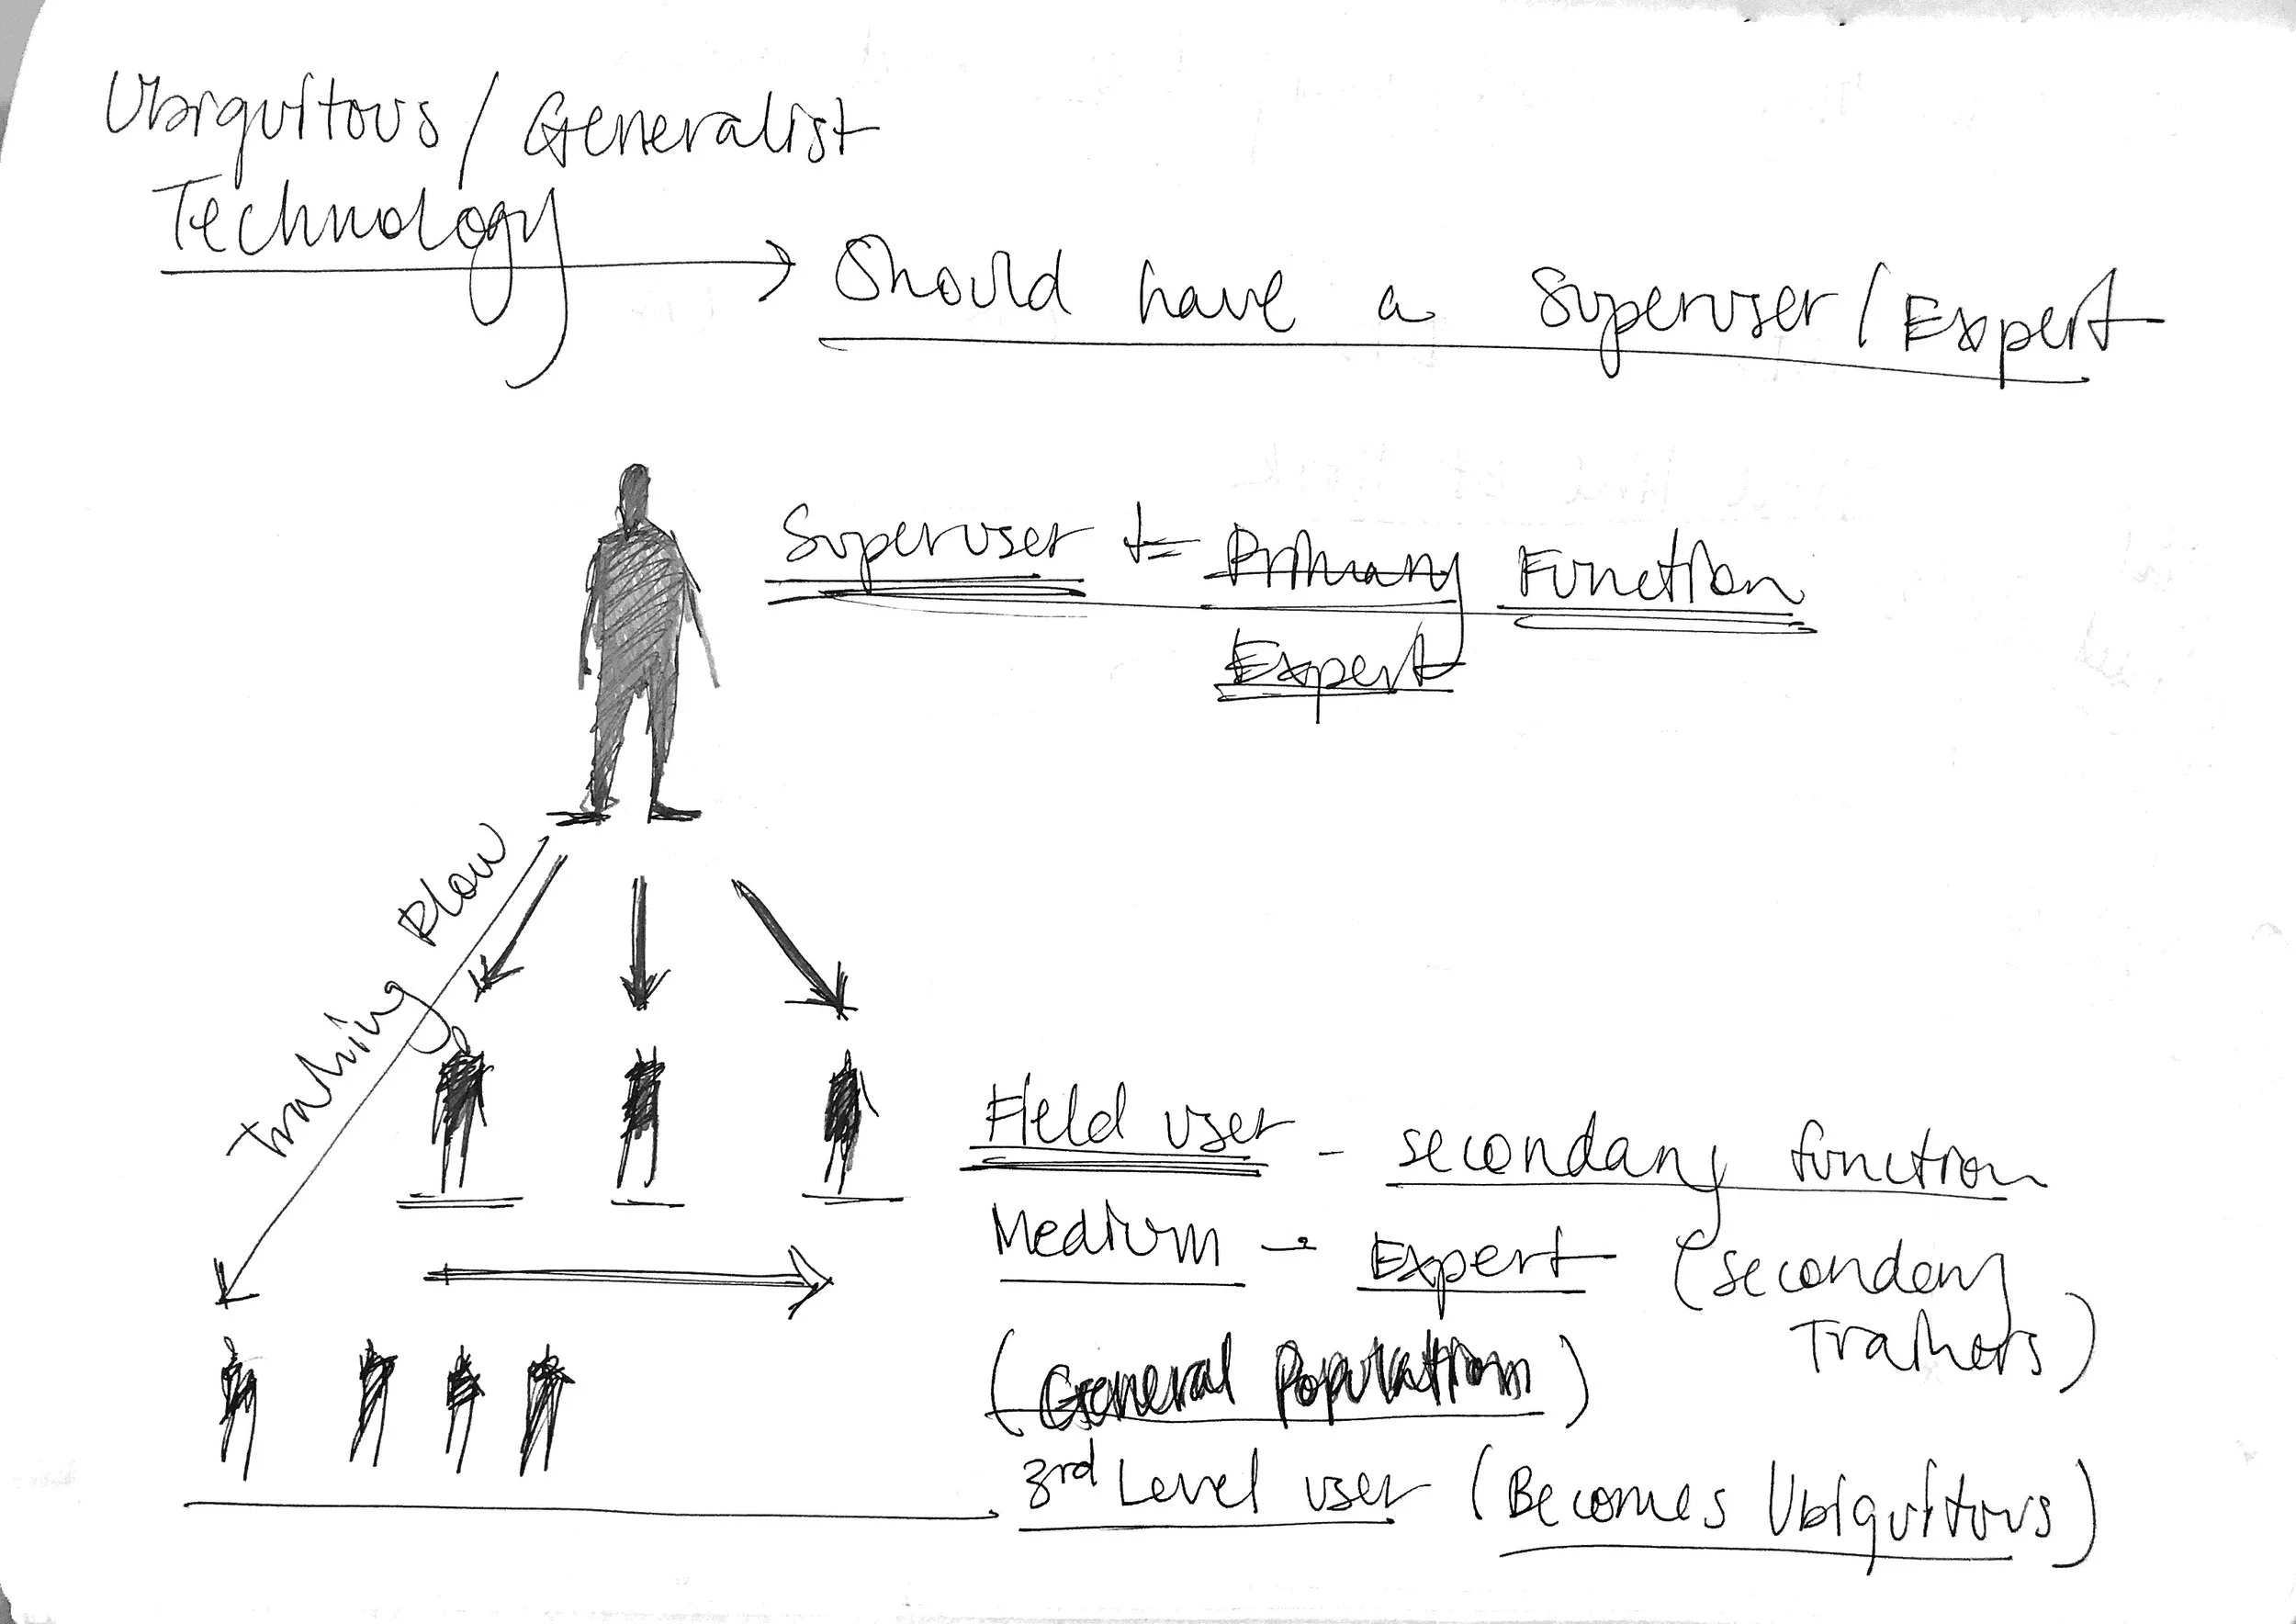 Ubiquitous / Generalist
Technology
Should have a Superuser / Expert
Superuser != Primary Function
Expert
Training Flow
Field user - secondary function
Medium - Expert (secondary
Trainers)
(General Population)
3rd Level user (Becomes Ubiquitous)